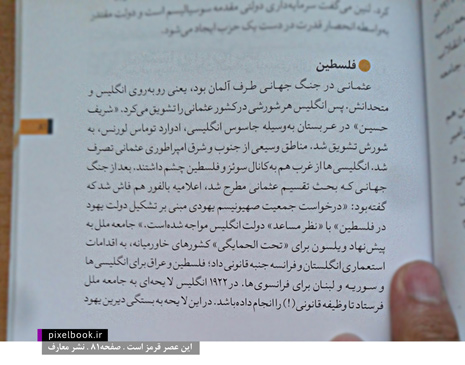 کرد. لنین می‌گفت سرمایه‌داری دولتی مقدمه سوسیالیسم است و دولت مقتدر
به‌واسطه انحصار قدرت در دست یک حزب ایجاد می‌شود.
فلسطین
عثمانی در جنگ جهانی طرف آلمان بود، یعنی روبه‌روی انگلیس و
متحدانش. پس انگلیس هر شورشی در کشور عثمانی را تشویق می‌کرد. «شریف
حسین» در عربستان به‌وسیله جاسوس انگلیسی، ادوارد توماس لورنس، به
شورش تشویق شد. مناطق وسیعی از جنوب و شرق امپراطوری عثمانی تصرف
شد. انگلیسی‌ها از غرب هم به کانال سوئز و فلسطین چشم داشتند. بعد از جنگ
جهانی که بحث تقسیم عثمانی مطرح شد، اعلامیه بالفور هم فاش شد که
گفته بود: «درخواست جمعیت صهیونیسم یهودی مبنی بر تشکیل دولت یهود
در فلسطین» با «نظر مساعد» دولت انگلیس مواجه شده است.» جامعه ملل به
پیش‌نهاد ویلسون برای «تحت الحمایگی» کشورهای خاورمیانه، به اقدامات
استعماری انگلستان و فرانسه جنبه قانونی داد؛ فلسطین و عراق برای انگلیسی‌ها
و سوریه و لبنان برای فرانسوی‌ها. در ۱۹۲۲ انگلیس لایحه‌ای به جامعه ملل
فرستاد تا وظیفه قانونی (!) را انجام داده باشد. در این لایحه به بستگی دیرین یهود
pixelbook.ir
این عصر قرمز است . صفحه۸۱ . نشر معارف